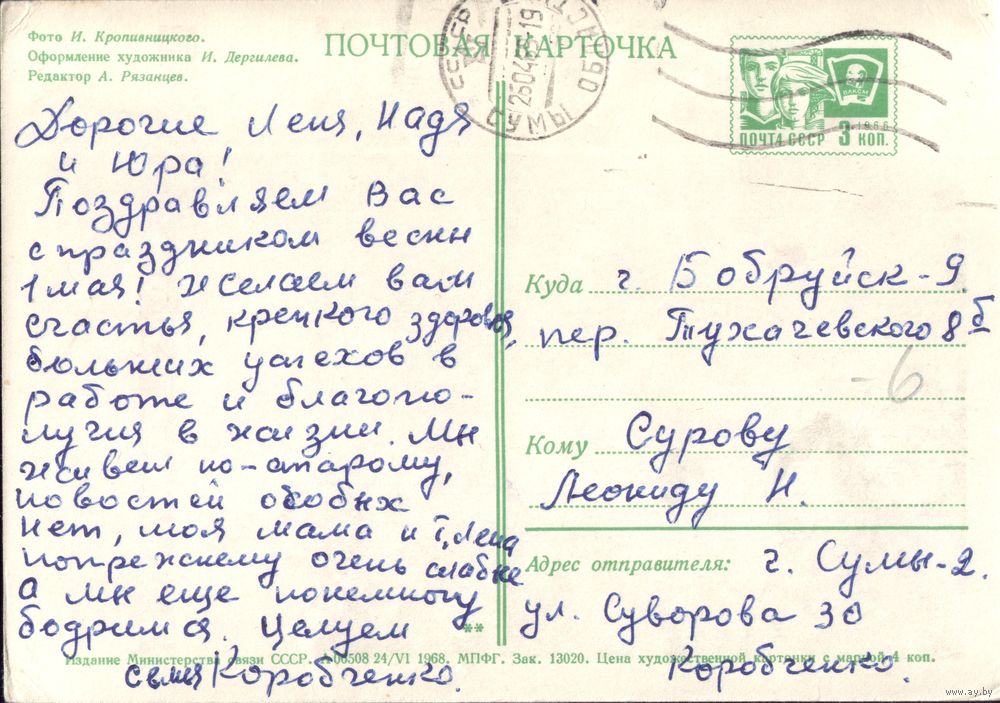 Фото И. Кропивницкого.
Оформление художника И. Дергилева.
Редактор А. Рязанцев.
ПОЧТОВАЯ КАРТОЧКА
СССР
СУМЫ ОБЛ
ВЛКСМ
1966
ПОЧТА СССР 3 КОП.
Дорогие Леня, Надя
и Юра!
Поздравляем Вас
с праздником весны
1 мая! Желаем вам
счастья, крепкого здоровья,
больших успехов в
работе и благопо-
лучия в жизни. Мы
живем по-старому,
новостей особых
нет, моя мама и т. Лена
попрежнему очень слабые
А мы еще понемногу
бодримся. Целуем
семья Коробченко.
Куда г. Бобруйск-9.
пер. Тухачевского 8б
-6
Кому Сурову
Леониду Н.
Адрес отправителя: г. Сумы-2.
ул. Суворова 30
Коробченко.
**
Издание Министерства связи СССР. А 06508 24/VI 1968. МПФГ. Зак. 13020. Цена художественной карточки с маркой 4 коп.
www.ay.by